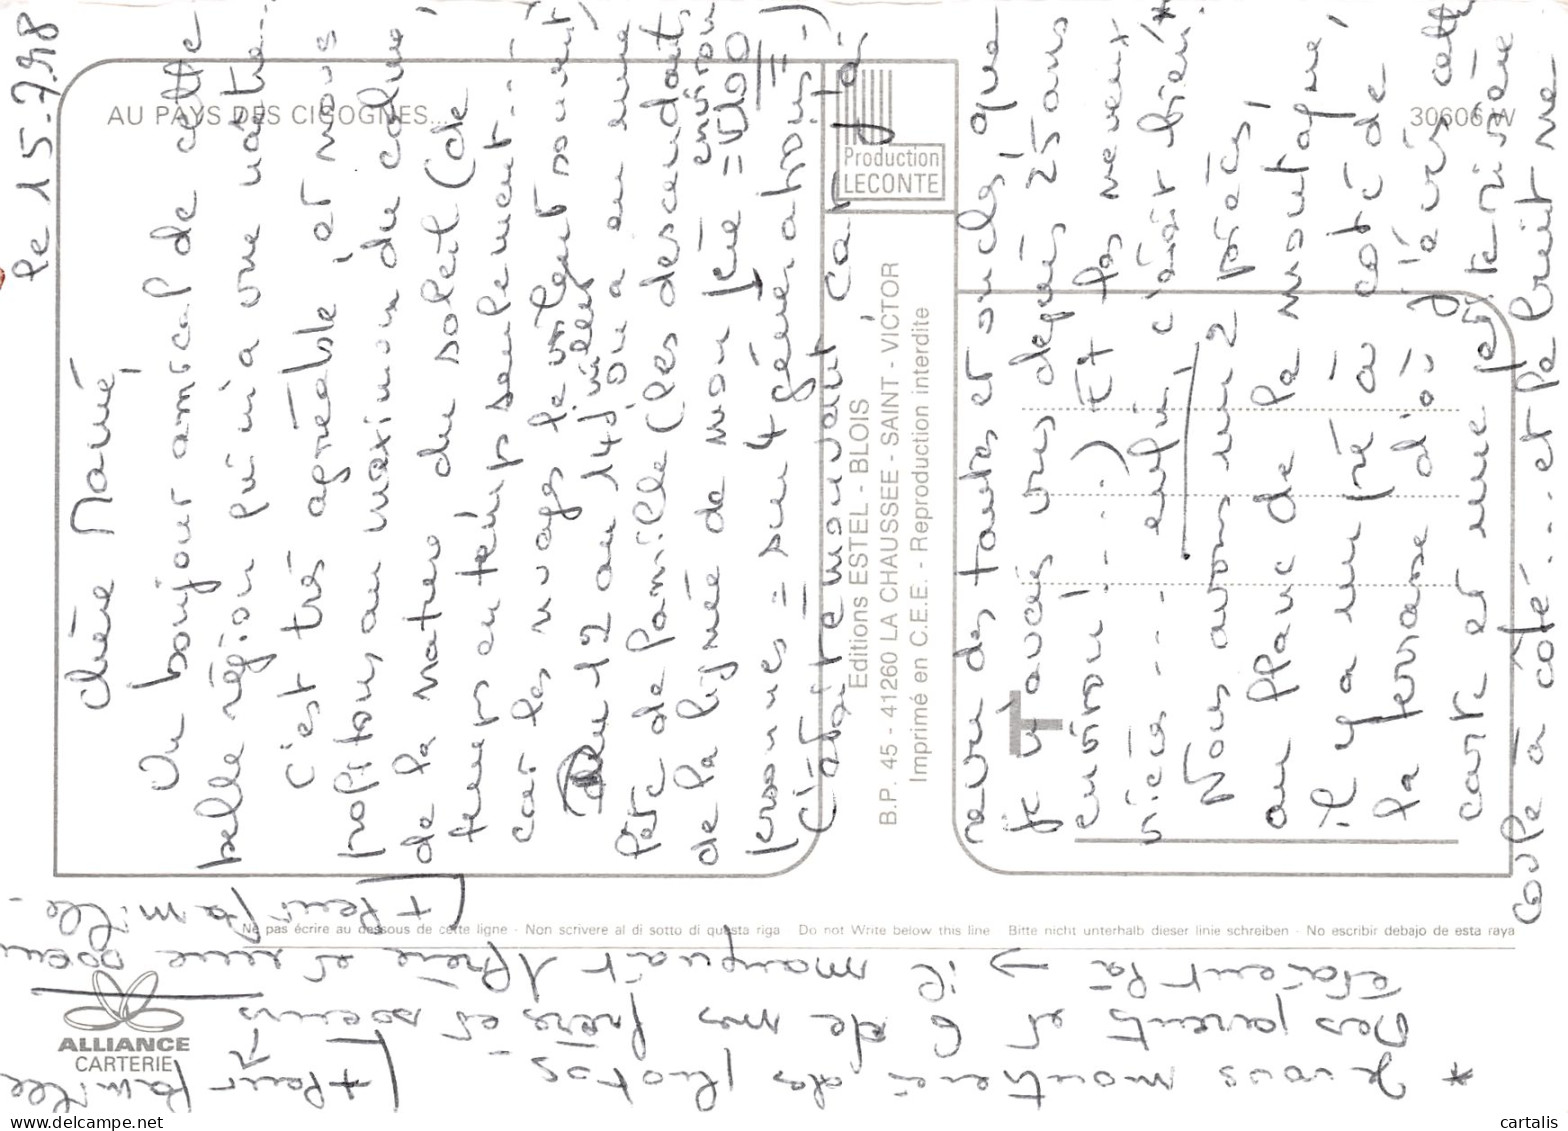 le 15.7.98
Chère Mamé,
Un bonjour amical de cette
belle région qui m'a vue naître...
C'est très agréable, et nous
profitons au maximum du calme,
de la nature, du soleil (de
temps en temps seulement...
car les nuages le voilent souvent)
Du 12 au 14 juillet, on a eu une
fête de famille (les descendants
de la lignée de mon père = environ 100
personnes = sur 4 générations !)
C'était émouvant, car j'ai
revu des tantes et oncles, que
je n'avais vus depuis 25 ans
environ !...) Et les neveux
nièces... enfin, c'était bien !*
Nous avons un 2 pièces,
au flanc de la montagne,
il y a un pré à côté de
la terrasse d'où j'écris cette
carte et une
coule à côté... et le bruit ne
* Je vous montrerai des photos -
Des parents et 6 de mes frères et soeurs
étaient là → il manquait 1 frère et une soeur
(+ leur famille
(+ leur famille -
AU PAYS DES CIGOGNES...
30606 W
Production
LECONTE
Editions ESTEL - BLOIS
B.P. 45 - 41260 LA CHAUSSEE - SAINT - VICTOR
Imprimé en C.E.E. - Reproduction interdite
T
Ne pas écrire au dessous de cette ligne - Non scrivere al di sotto di questa riga Do not Write below this line Bitte nicht unterhalb dieser linie schreiben - No escribir debajo de esta raya
ALLIANCE
CARTERIE
www.delcampe.net
cartalis